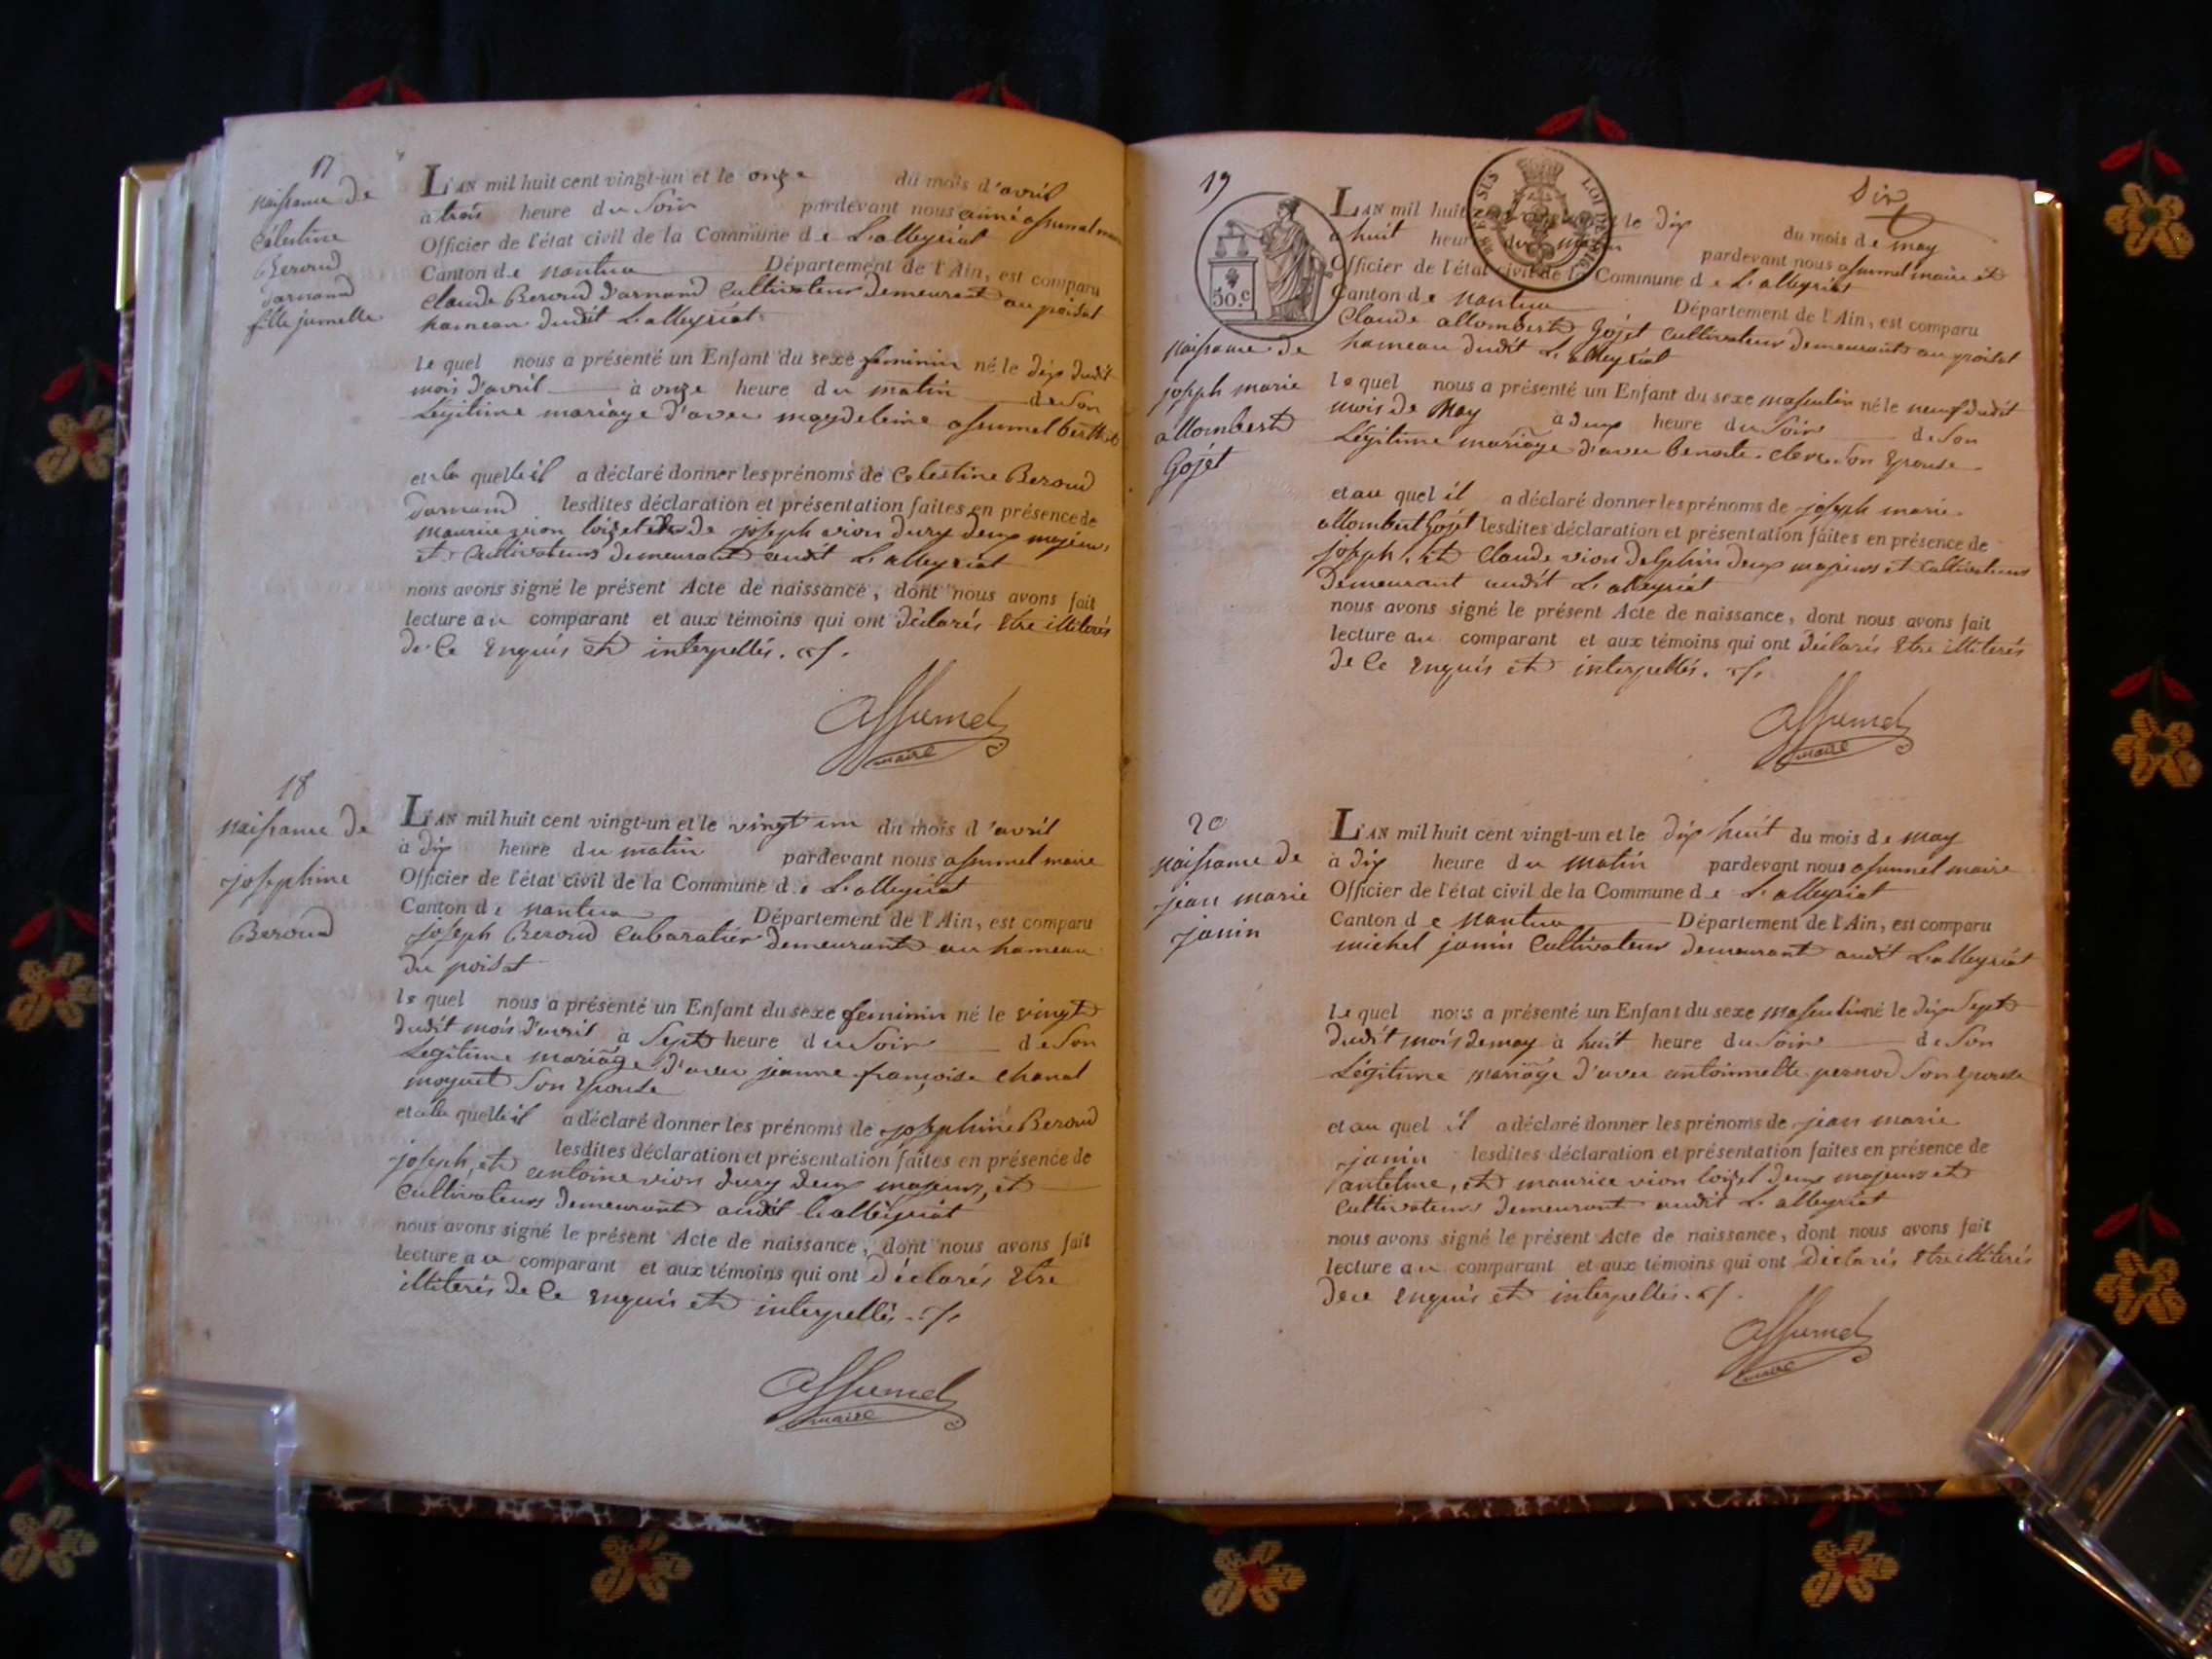 17
naissance de
Célestine
Beroud
darnand
fille jumelle
L'AN mil huit cent vingt-un et le onze du mois d'avril
à trois heure du Soir pardevant nous aimé assumel maire
Officier de l'état civil de la Commune de L'alleyriat
Canton de nantua Département de l'Ain, est comparu
claude Beroud darnand Cultivateur demeurant au poisat
hameau dudit L'alleyriat
le quel nous a présenté un Enfant du sexe feminin né le dix dudit
mois d'avril à onze heure du matin de Son
Légitime mariage d'avec magdeleine assumel
et a la quelle il a déclaré donner les prénoms de Celestine Beroud
darnand lesdites déclaration et présentation faites en présence de
maurice vion loizel et de joseph vion dury deux majeurs
et Cultivateurs demeurant audit L'alleyriat
nous avons signé le présent Acte de naissance, dont nous avons fait
lecture au comparant et aux témoins qui ont déclarés Etre illiterés
de Ce Enquis et interpellés.
Assumel
maire
18
naissance de
josephine
Beroud
L'AN mil huit cent vingt-un et le vingt un du mois d'avril
à dix heure du matin pardevant nous assumel maire
Officier de l'état civil de la Commune de L'alleyriat
Canton de nantua Département de l'Ain, est comparu
joseph Beroud Cabaratier demeurant au hameau
du poisat
le quel nous a présenté un Enfant du sexe feminin né le vingt
dudit mois d'avril à Sept heure du Soir de Son
Legitime mariage d'avec jeanne françoise Chanal
moguet Son Epouse
et a la quelle il a déclaré donner les prénoms de josephine Beroud
lesdites déclaration et présentation faites en présence de
joseph, et antoine vion dury deux majeurs, et
Cultivateurs demeurant audit L'alleyriat
nous avons signé le présent Acte de naissance, dont nous avons fait
lecture au comparant et aux témoins qui ont déclarés Etre
illiterés de Ce Enquis et interpellés.
Assumel
maire
Dix
19
30.c
LOI DE
naissance de
joseph marie
allombert
Gojet
L'AN mil huit le dix du mois de may
à huit heure du matin pardevant nous assumel maire et
Officier de l'état civil de la Commune de L'alleyriat
Canton de nantua Département de l'Ain, est comparu
Claude allombert Gojet Cultivateur demeurant au poisat
hameau dudit L'alleyriat
le quel nous a présenté un Enfant du sexe masculin né le neuf dudit
mois de May à deux heure du Soir de Son
Légitime mariage d'avec Benoite Clerc Son Epouse
et au quel il a déclaré donner les prénoms de joseph marie
allombert Gojet lesdites déclaration et présentation faites en présence de
joseph, et Claude vion Delphin deux majeurs et Cultivateurs
demeurant audit L'alleyriat
nous avons signé le présent Acte de naissance, dont nous avons fait
lecture au comparant et aux témoins qui ont déclarés Etre illiterés
de Ce Enquis et interpellés.
Assumel
maire
20
naissance de
jean marie
janin
L'AN mil huit cent vingt-un et le dix huit du mois de may
à dix heure du matin pardevant nous assumel maire
Officier de l'état civil de la Commune de L'alleyriat
Canton de nantua Département de l'Ain, est comparu
michel janin Cultivateur demeurant audit L'alleyriat
le quel nous a présenté un Enfant du sexe masculin né le dix Sept
dudit mois de may à huit heure du Soir de Son
Légitime mariage d'avec antoinnette pernod Son Epouse
et au quel il a déclaré donner les prénoms de jean marie
janin lesdites déclaration et présentation faites en présence de
antelme, et maurice vion loizel deux majeurs et
Cultivateurs demeurant audit L'alleyriat
nous avons signé le présent Acte de naissance, dont nous avons fait
lecture au comparant et aux témoins qui ont Déclarés Etre illiterés
de ce Enquis et interpellés.
Assumel
maire